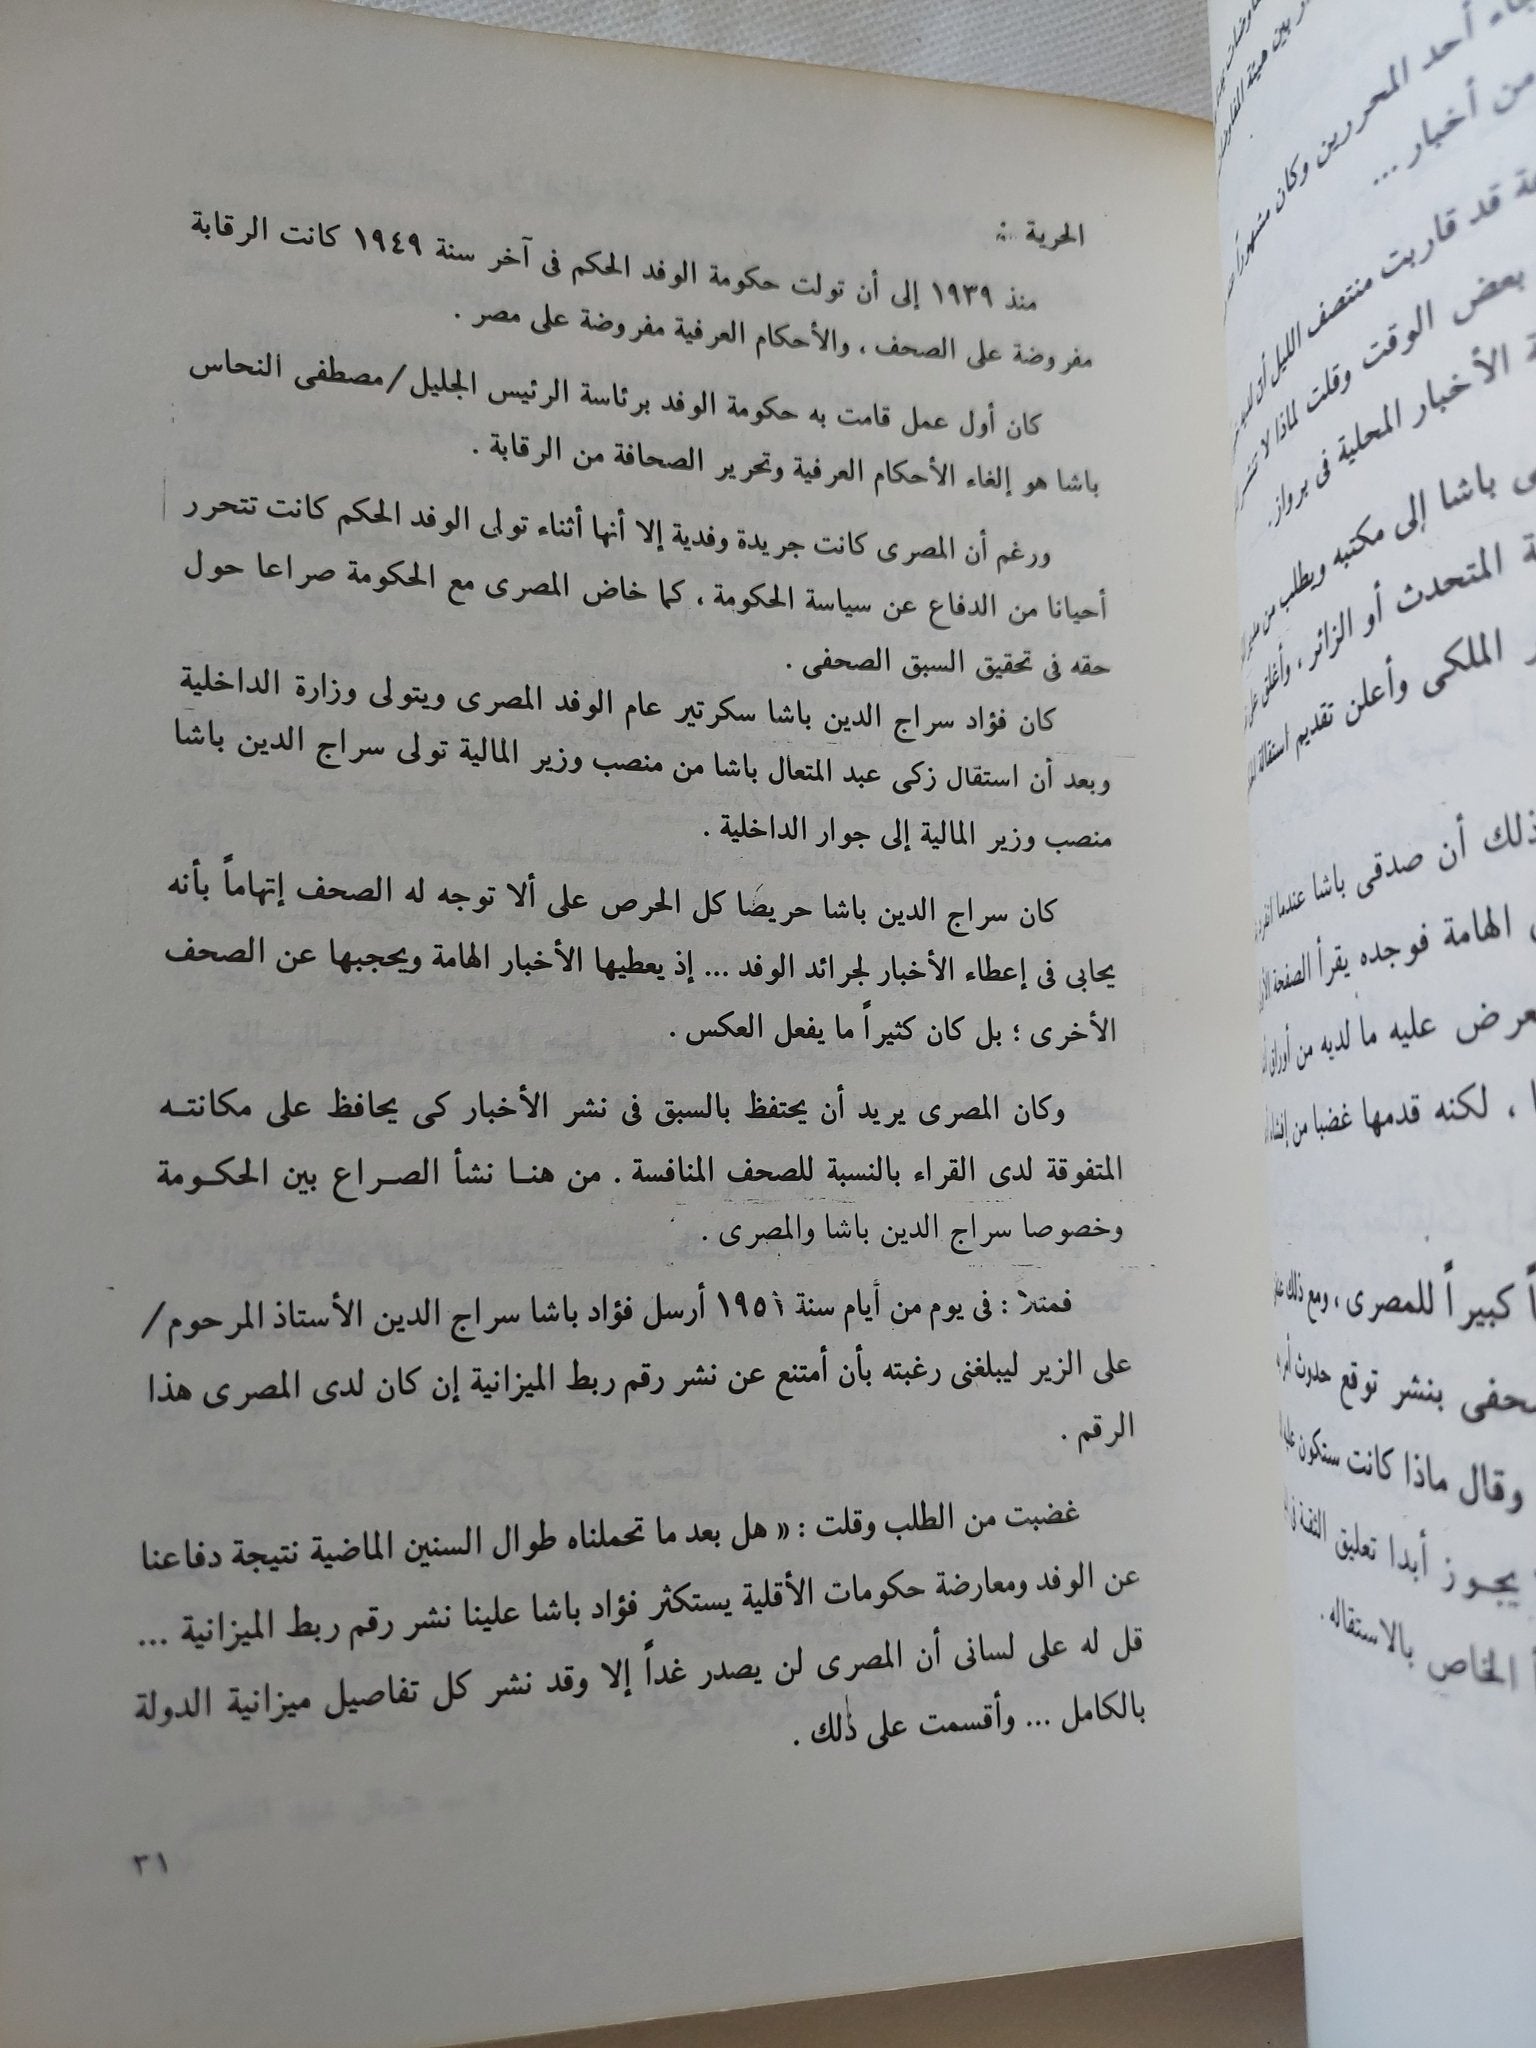 الحرية ..
منذ ١٩٣٩ إلى أن تولت حكومة الوفد الحكم فى آخر سنة ١٩٤٩ كانت الرقابة
مفروضة على الصحف ، والأحكام العرفية مفروضة على مصر .
كان أول عمل قامت به حكومة الوفد برئاسة الرئيس الجليل/مصطفى النحاس
باشا هو إلغاء الأحكام العرفية وتحرير الصحافة من الرقابة .
ورغم أن المصرى كانت جريدة وفدية إلا أنها أثناء تولى الوفد الحكم كانت تتحرر
أحيانا من الدفاع عن سياسة الحكومة ، كما خاض المصرى مع الحكومة صراعا حول
حقه فى تحقيق السبق الصحفى .
كان فؤاد سراج الدين باشا سكرتير عام الوفد المصرى ويتولى وزارة الداخلية
وبعد أن استقال زكى عبد المتعال باشا من منصب وزير المالية تولى سراج الدين باشا
منصب وزير المالية إلى جوار الداخلية .
كان سراج الدين باشا حريصا كل الحرص على ألا توجه له الصحف إتهاماً بأنه
يحابى فى إعطاء الأخبار لجرائد الوفد ... إذ يعطيها الأخبار الهامة ويحجبها عن الصحف
الأخرى ؛ بل كان كثيراً ما يفعل العكس .
وكان المصرى يريد أن يحتفظ بالسبق فى نشر الأخبار كى يحافظ على مكانته
المتفوقة لدى القراء بالنسبة للصحف المنافسة . من هنا نشأ الصراع بين الحكومة
وخصوصا سراج الدين باشا والمصرى .
فمثلا : فى يوم من أيام سنة ١٩٥١ أرسل فؤاد باشا سراج الدين الأستاذ المرحوم/
على الزير ليبلغنى رغبته بأن أمتنع عن نشر رقم ربط الميزانية إن كان لدى المصرى هذا
الرقم .
غضبت من الطلب وقلت : « هل بعد ما تحملناه طوال السنين الماضية نتيجة دفاعنا
عن الوفد ومعارضة حكومات الأقلية يستكثر فؤاد باشا علينا نشر رقم ربط الميزانية ...
قل له على لسانى أن المصرى لن يصدر غداً إلا وقد نشر كل تفاصيل ميزانية الدولة
بالكامل ... وأقسمت على ذلك .
٣١
أحد المحررين وكان مشهوراً
من أخبار ...
قد قاربت منتصف الليل
بعض الوقت وقلت لماذا لا
الأخبار المحلية فى برواز .
باشا إلى مكتبه ويطلب من
المتحدث أو الزائر ، وأغلق
الملكى وأعلن تقديم استقالة
ذلك أن صدقى باشا عندما
الهامة فوجده يقرأ الصفحة
عليه ما لديه من أوراق
، لكنه قدمها غضبا من
كبيراً للمصرى ، ومع ذلك
بنشر توقع حدوث
وقال ماذا كانت ستكون
يجوز أبدا تعليق الثقة
الخاص بالاستقاله .